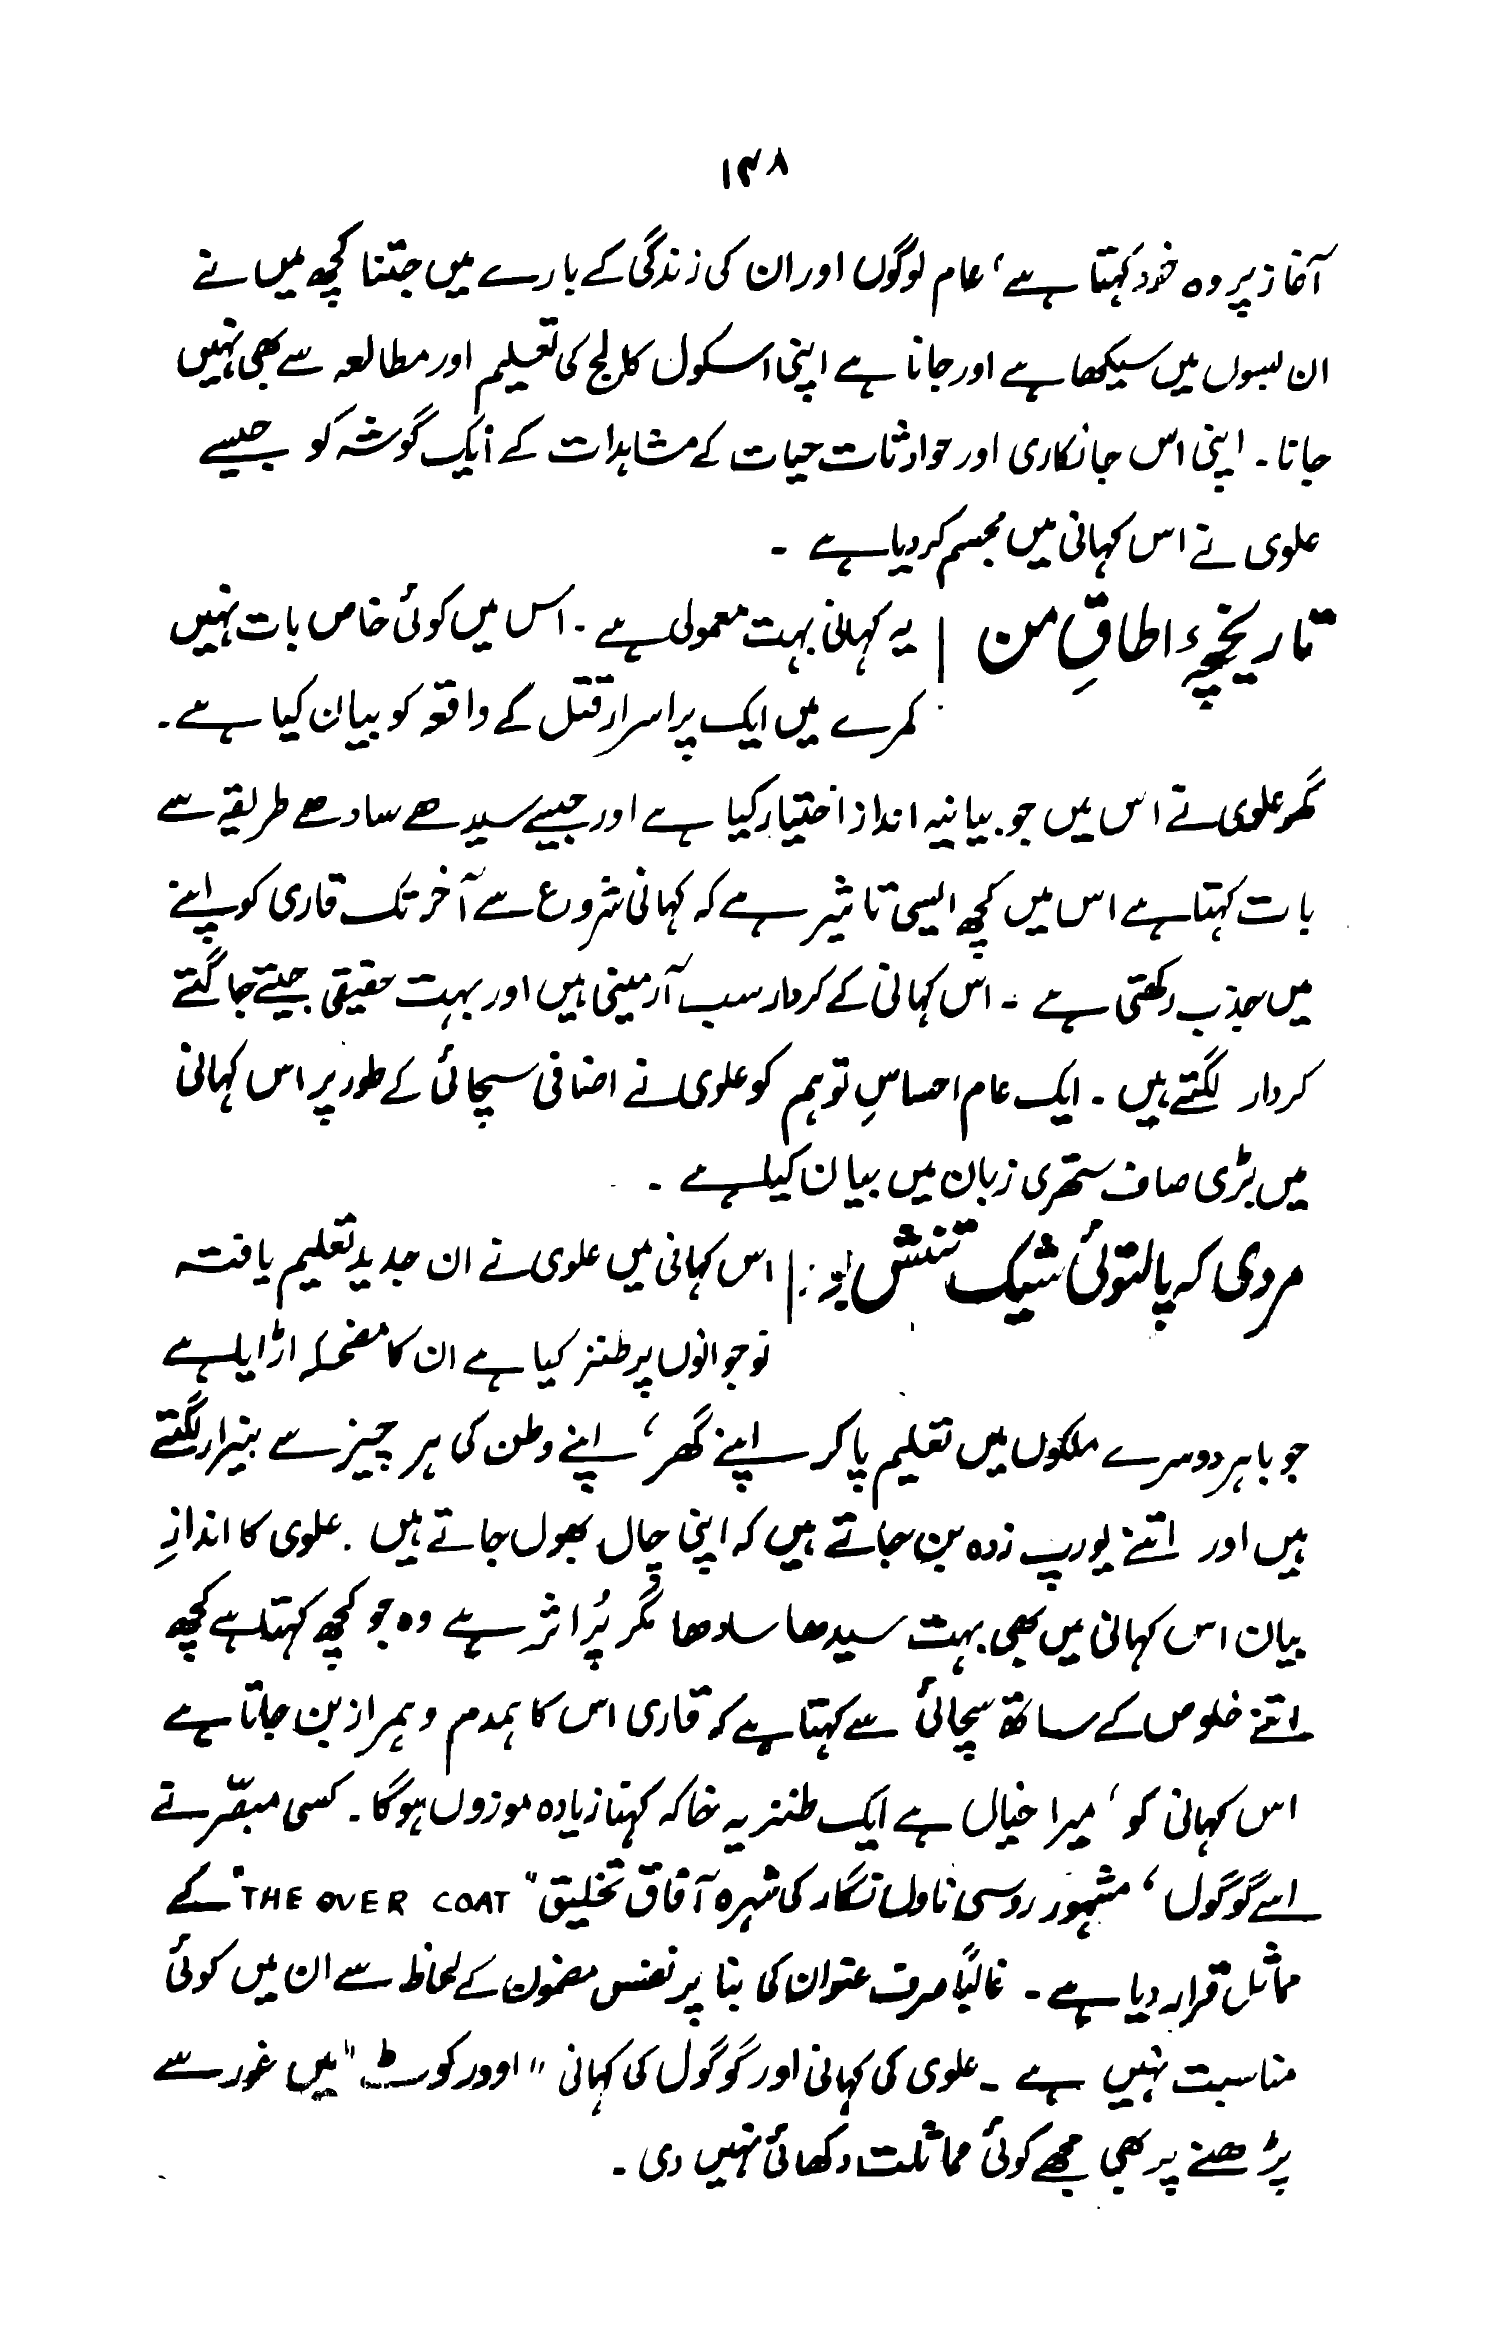 ۱۴۸
آغاز پر وہ خود کہتا ہے، عام لوگوں اور ان کی زندگی کے بارے میں جتنا کچھ میں نے
ان بسوں میں سیکھا ہے اور جانا ہے اپنی اسکول کالج کی تعلیم اور مطالعہ سے بھی نہیں
جانا۔ اپنی اس جانکاری اور حوادثات حیات کے مشاہدات کے ایک گوشہ کو جیسے
علوی نے اس کہانی میں مجسم کر دیا ہے ۔
تاریخچہء اطاقِ من | یہ کہانی بہت معمولی ہے ۔ اس میں کوئی خاص بات نہیں
کمرے میں ایک پراسرار قتل کے واقعہ کو بیان کیا ہے ۔
مگر علوی نے اس میں جو بیانیہ انداز اختیار کیا ہے اور جیسے سیدھے سادھے طریقے سے
بات کہتا ہے اس میں کچھ ایسی تاثیر ہے کہ کہانی شروع سے آخر تک قاری کو اپنے
میں جذب رکھتی ہے ۔ اس کہانی کے کردار سب آرمینی ہیں اور بہت حقیقی جیتے جاگتے
کردار لگتے ہیں ۔ ایک عام احساسِ توہم کو علوی نے اضافی سچائی کے طور پر اس کہانی
میں بڑی صاف ستھری زبان میں بیان کیا ہے ۔
مردی کہ پالتوئی شیک تنش بود: | اس کہانی میں علوی نے ان جدید تعلیم یافتہ
نوجوانوں پر طنز کیا ہے ان کا مضحکہ اڑایا ہے
جو باہر دوسرے ملکوں میں تعلیم پا کر اپنے گھر، اپنے وطن کی ہر چیز سے بیزار لگتے
ہیں اور اتنے یورپ زدہ بن جاتے ہیں کہ اپنی چال بھول جاتے ہیں ۔ علوی کا اندازِ
بیان اس کہانی میں بھی بہت سیدھا سادھا مگر پُر اثر ہے وہ جو کچھ کہتا ہے کچھ
اتنے خلوص کے ساتھ سچائی سے کہتا ہے کہ قاری اس کا ہمدم و ہمراز بن جاتا ہے
اس کہانی کو، میرا خیال ہے ایک طنزیہ خاکہ کہنا زیادہ موزوں ہوگا ۔ کسی مبصّر نے
اسے گوگول، مشہور روسی ناول نگار کی شہرہ آفاق تخلیق "THE OVER COAT" کے
مماثل قرار دیا ہے ۔ غالباً صرف عنوان کی بنا پر نفس مضمون کے لحاظ سے ان میں کوئی
مناسبت نہیں ہے ۔ علوی کی کہانی اور گوگول کی کہانی "اوور کوٹ" میں غور سے
پڑھنے پر بھی مجھے کوئی مماثلت دکھائی نہیں دی ۔